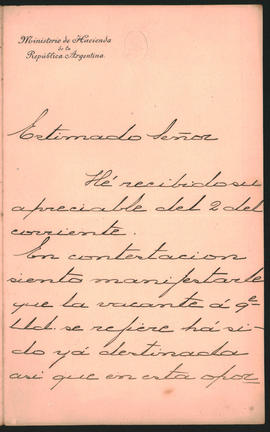 Ministerio de Hacienda
de la
República Argentina
Estimado Señor
Hé recibido su
apreciable del 2 del
corriente.
En contestacion
siento manifestarle
que la vacante á qe
Ud. se refiere há si-
do yá destinada
asi que en esta opor